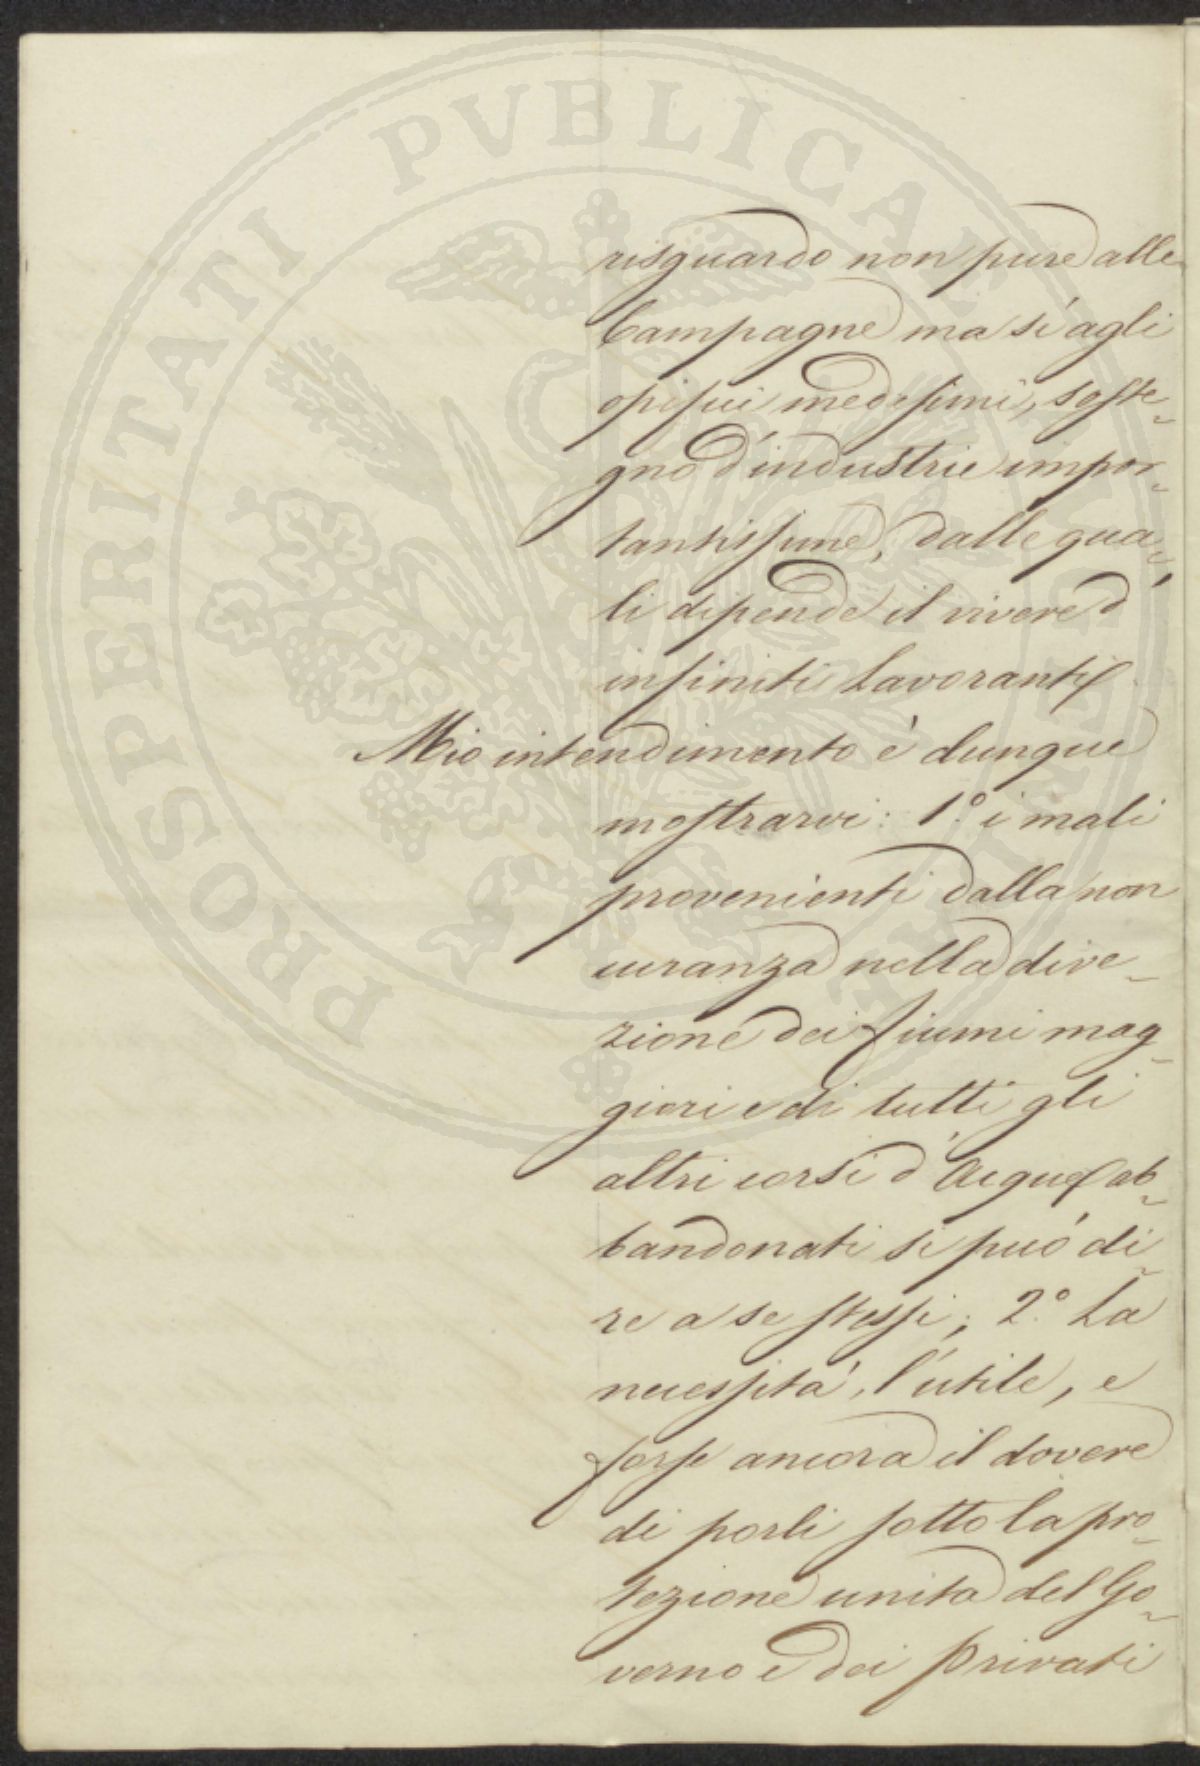 risguardo non pure alle
Campagne ma sì agli
opifici medesimi, soste-
gno d'industrie impor-
tantissime, dalle qua-
li dipende il vivere d'
infiniti Lavoranti.
Mio intendimento è dunque
mostrarvi: 1.° i mali
provenienti dalla non
curanza nella dire-
zione dei fiumi mag-
giori e di tutti gli
altri corsi d'Acque ab-
bandonati si può di-
re a se stessi; 2.° La
necessità, l'utile, e
forse ancora il dovere
di porli sotto la pro-
tezione unita del Go-
verno e dei privati
PROSPERITATI PVBLICAE